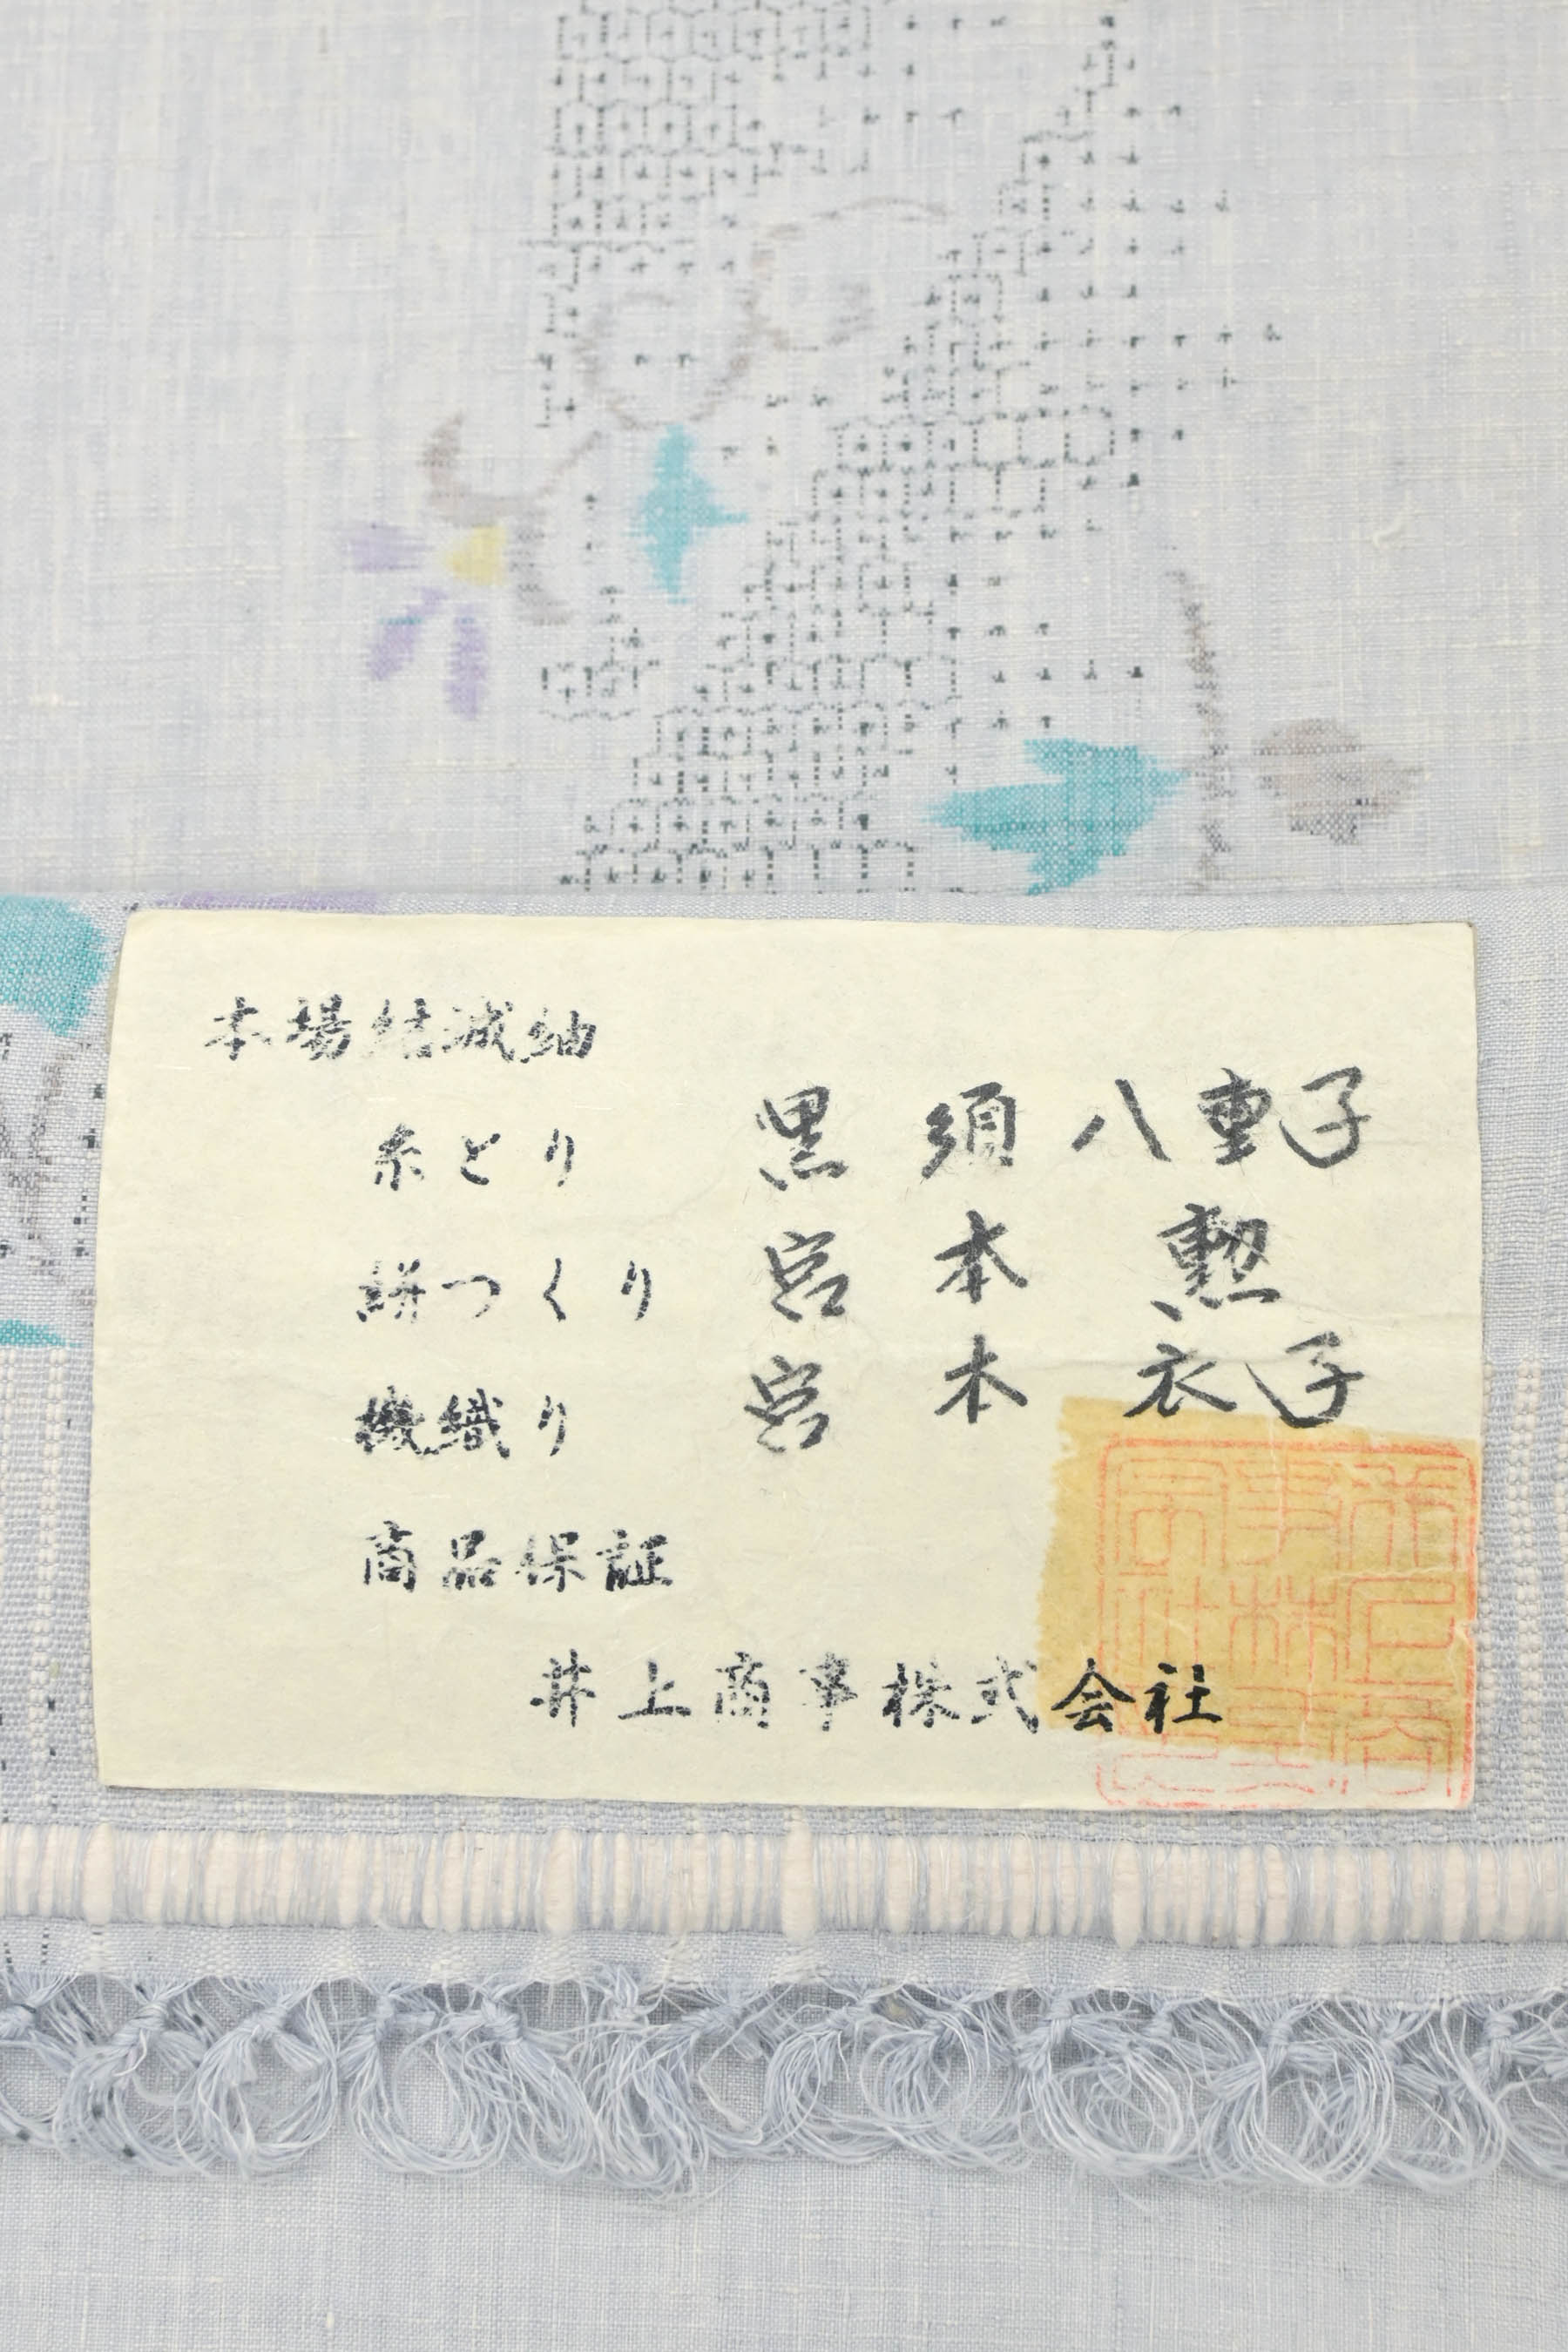 本場結城紬
糸とり 黒須八重子
絣つくり 宮本勲
機織り 宮本衣子
商品保証
井上商事株式会社